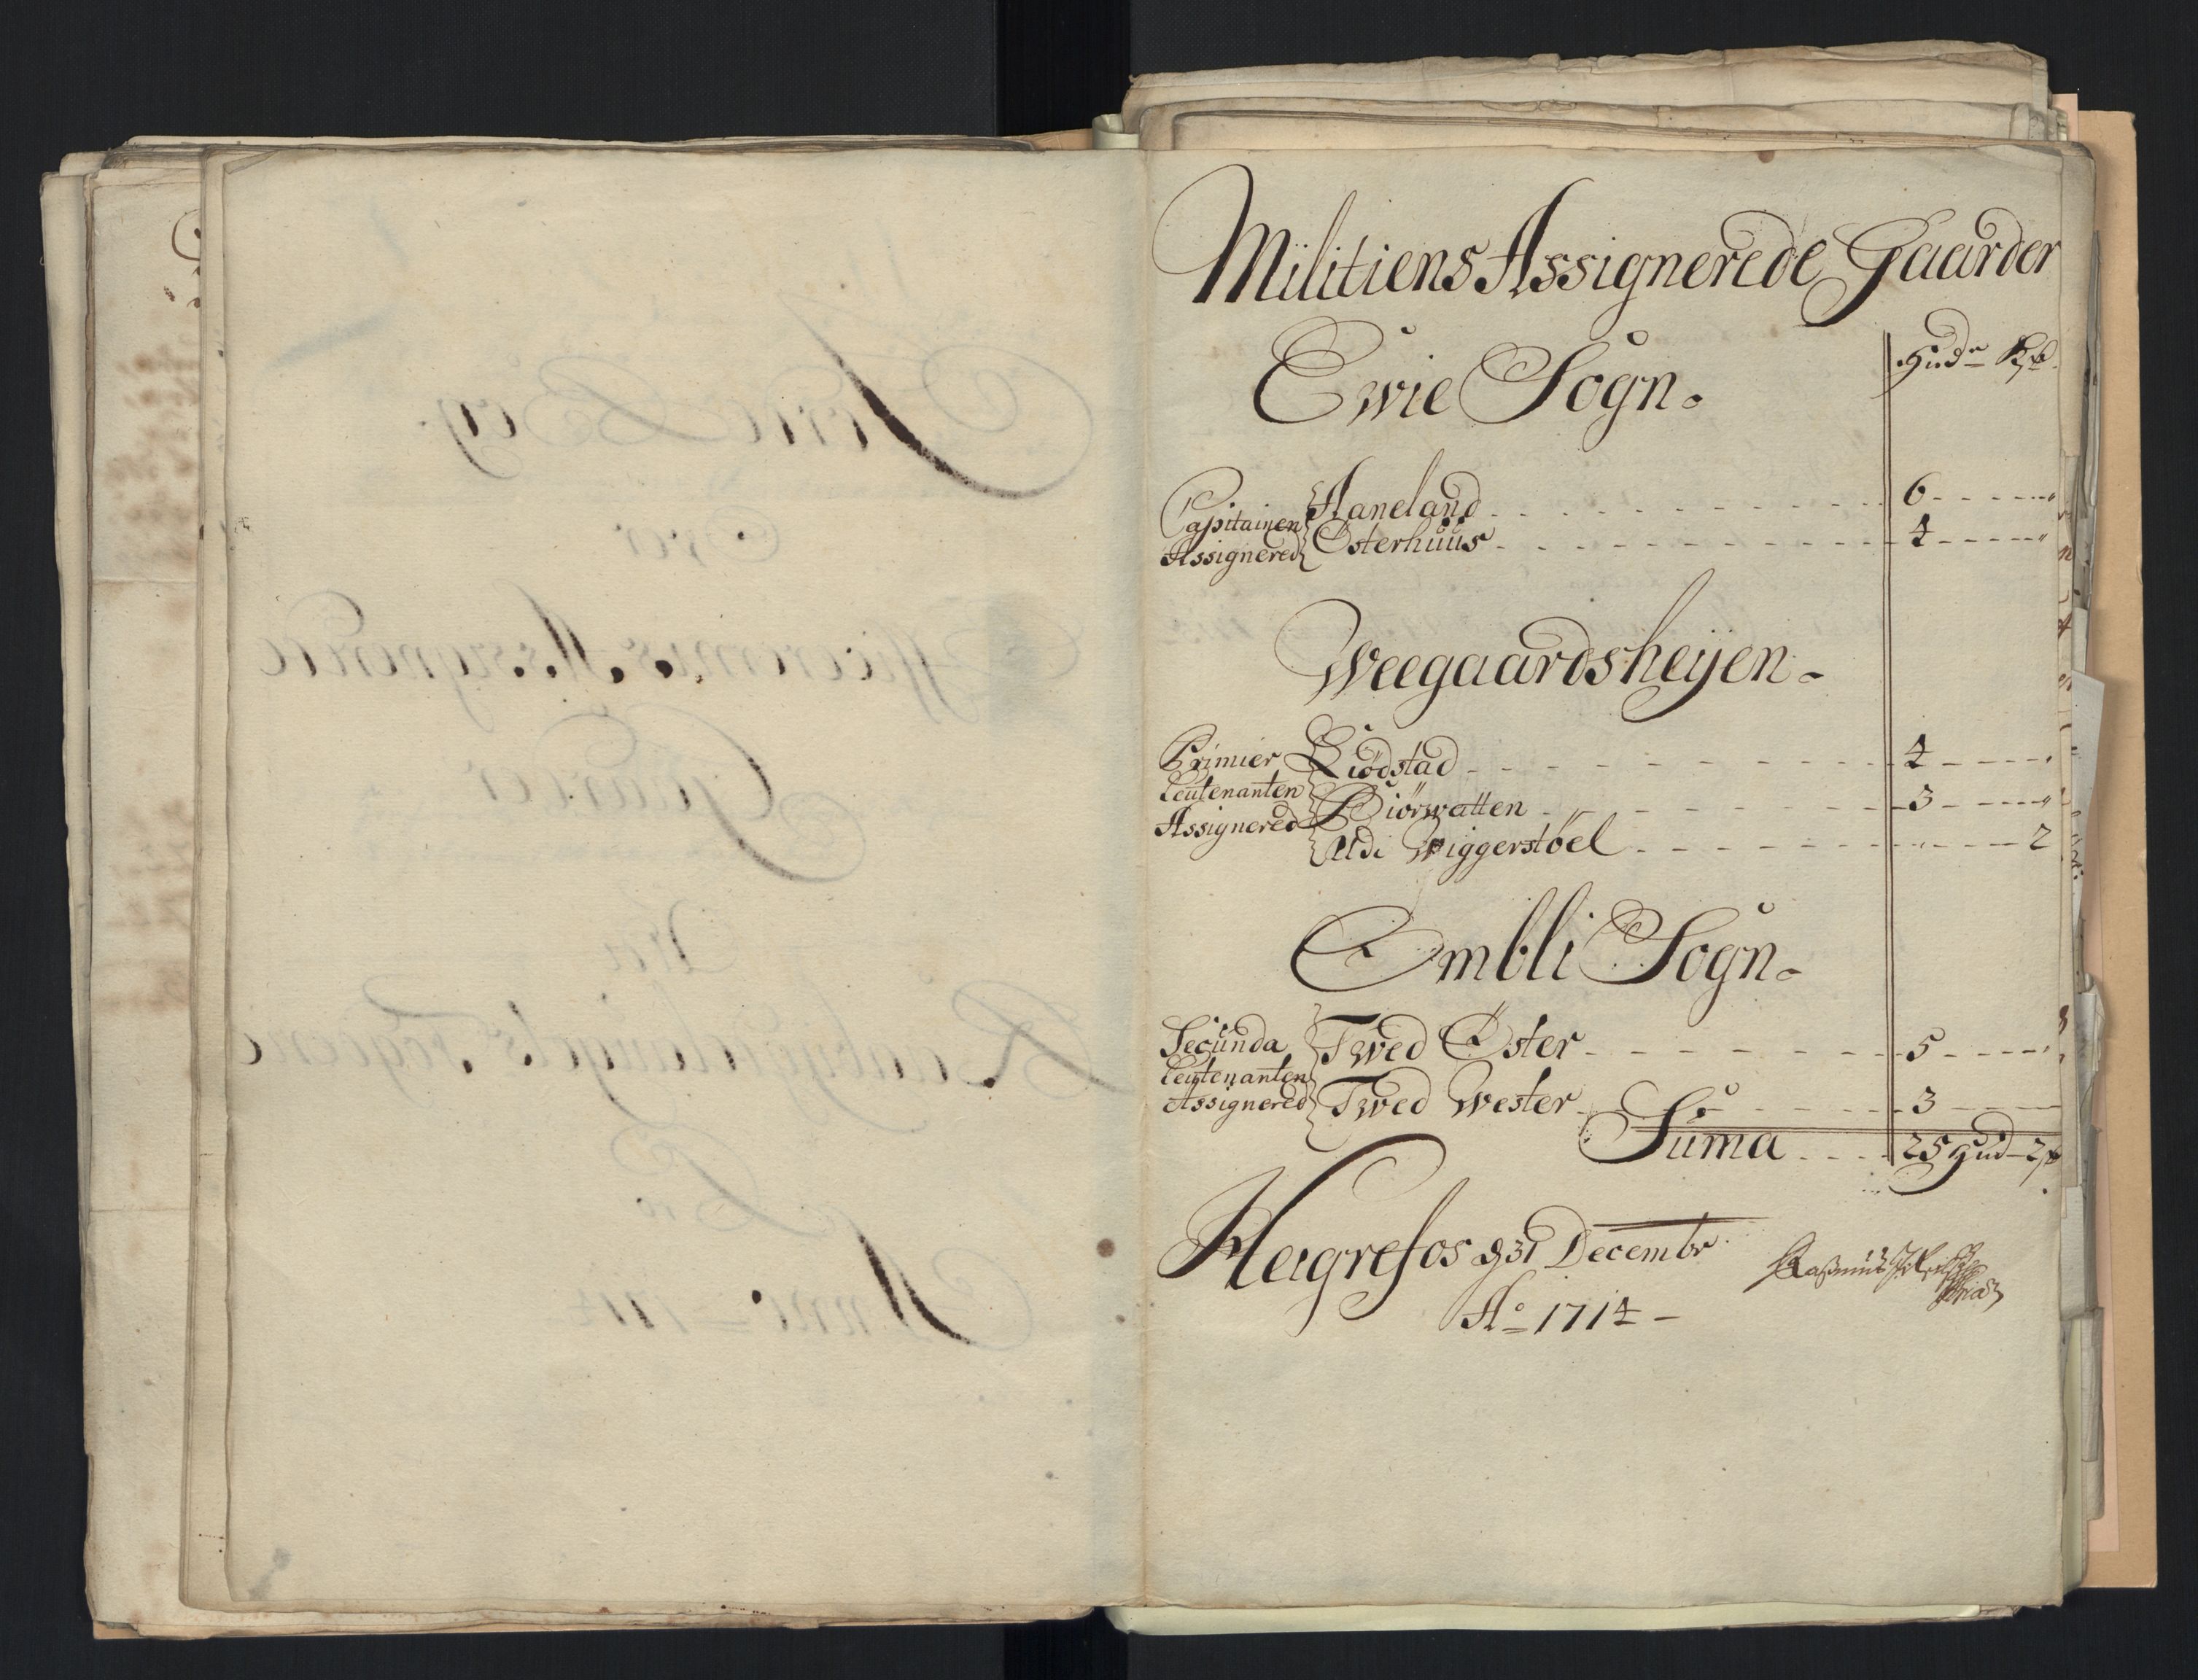 Militiens Assignerede Gaarder
Hudr Kß
Ewie Sogn.
Capitainen Assignered
Haneland - 6 - "
Østerhuus - 4 - "
Weegaardsheijen.
Primier Leutenanten Assignered
Liödstad - 4 - "
Biörwatten - 3 - "
Udi Wiggerstöel - " - 2
Ombli Sogn.
Secunda Leutenanten Assignered
Twed Øster - 5 - "
Twed Wester - 3 -
Suma - 25 Hud - 2ß
Heigrefos d 31 Decembr
Ao 1714 -